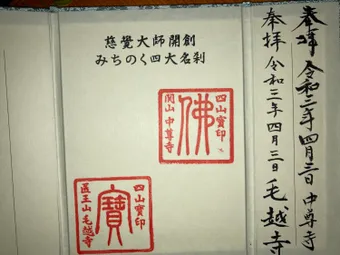 奉拝 令和三年 四月三日 中尊寺
奉拝 令和三年 四月三日 毛越寺
慈覺大師開創
みちのく四大名刹
四山寳印
佛
関山 中尊寺
四山寳印
寶
医王山 毛越寺